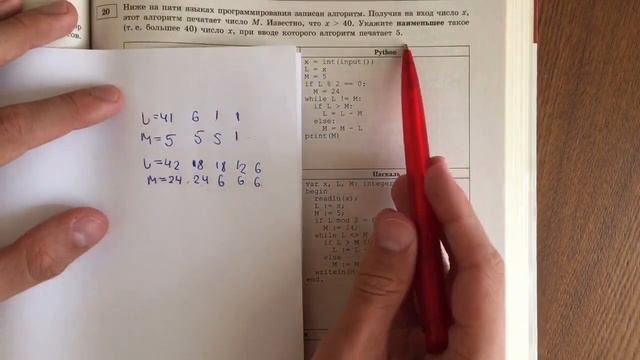 20
Ниже на пяти языках программирования записан алгоритм. Получив на вход число x,
этот алгоритм печатает число M. Известно, что x > 40. Укажите наименьшее такое
(т. е. большее 40) число x, при вводе которого алгоритм печатает 5.
Python
x = int(input())
L = x
M = 5
if L % 2 == 0:
M = 24
while L != M:
if L > M:
L = L - M
else:
M = M - L
print(M)
L=41 6 1 1
M=5 5 5 1
L=42 18 18 12 6
M=24 24 6 6 6
Паскаль
var x, L, M: integer
begin
readln(x);
L := x;
M := 5;
if L mod 2 =
M := 24;
while L <>
if L > M
L := L
else
M := M
writeln(M
end.